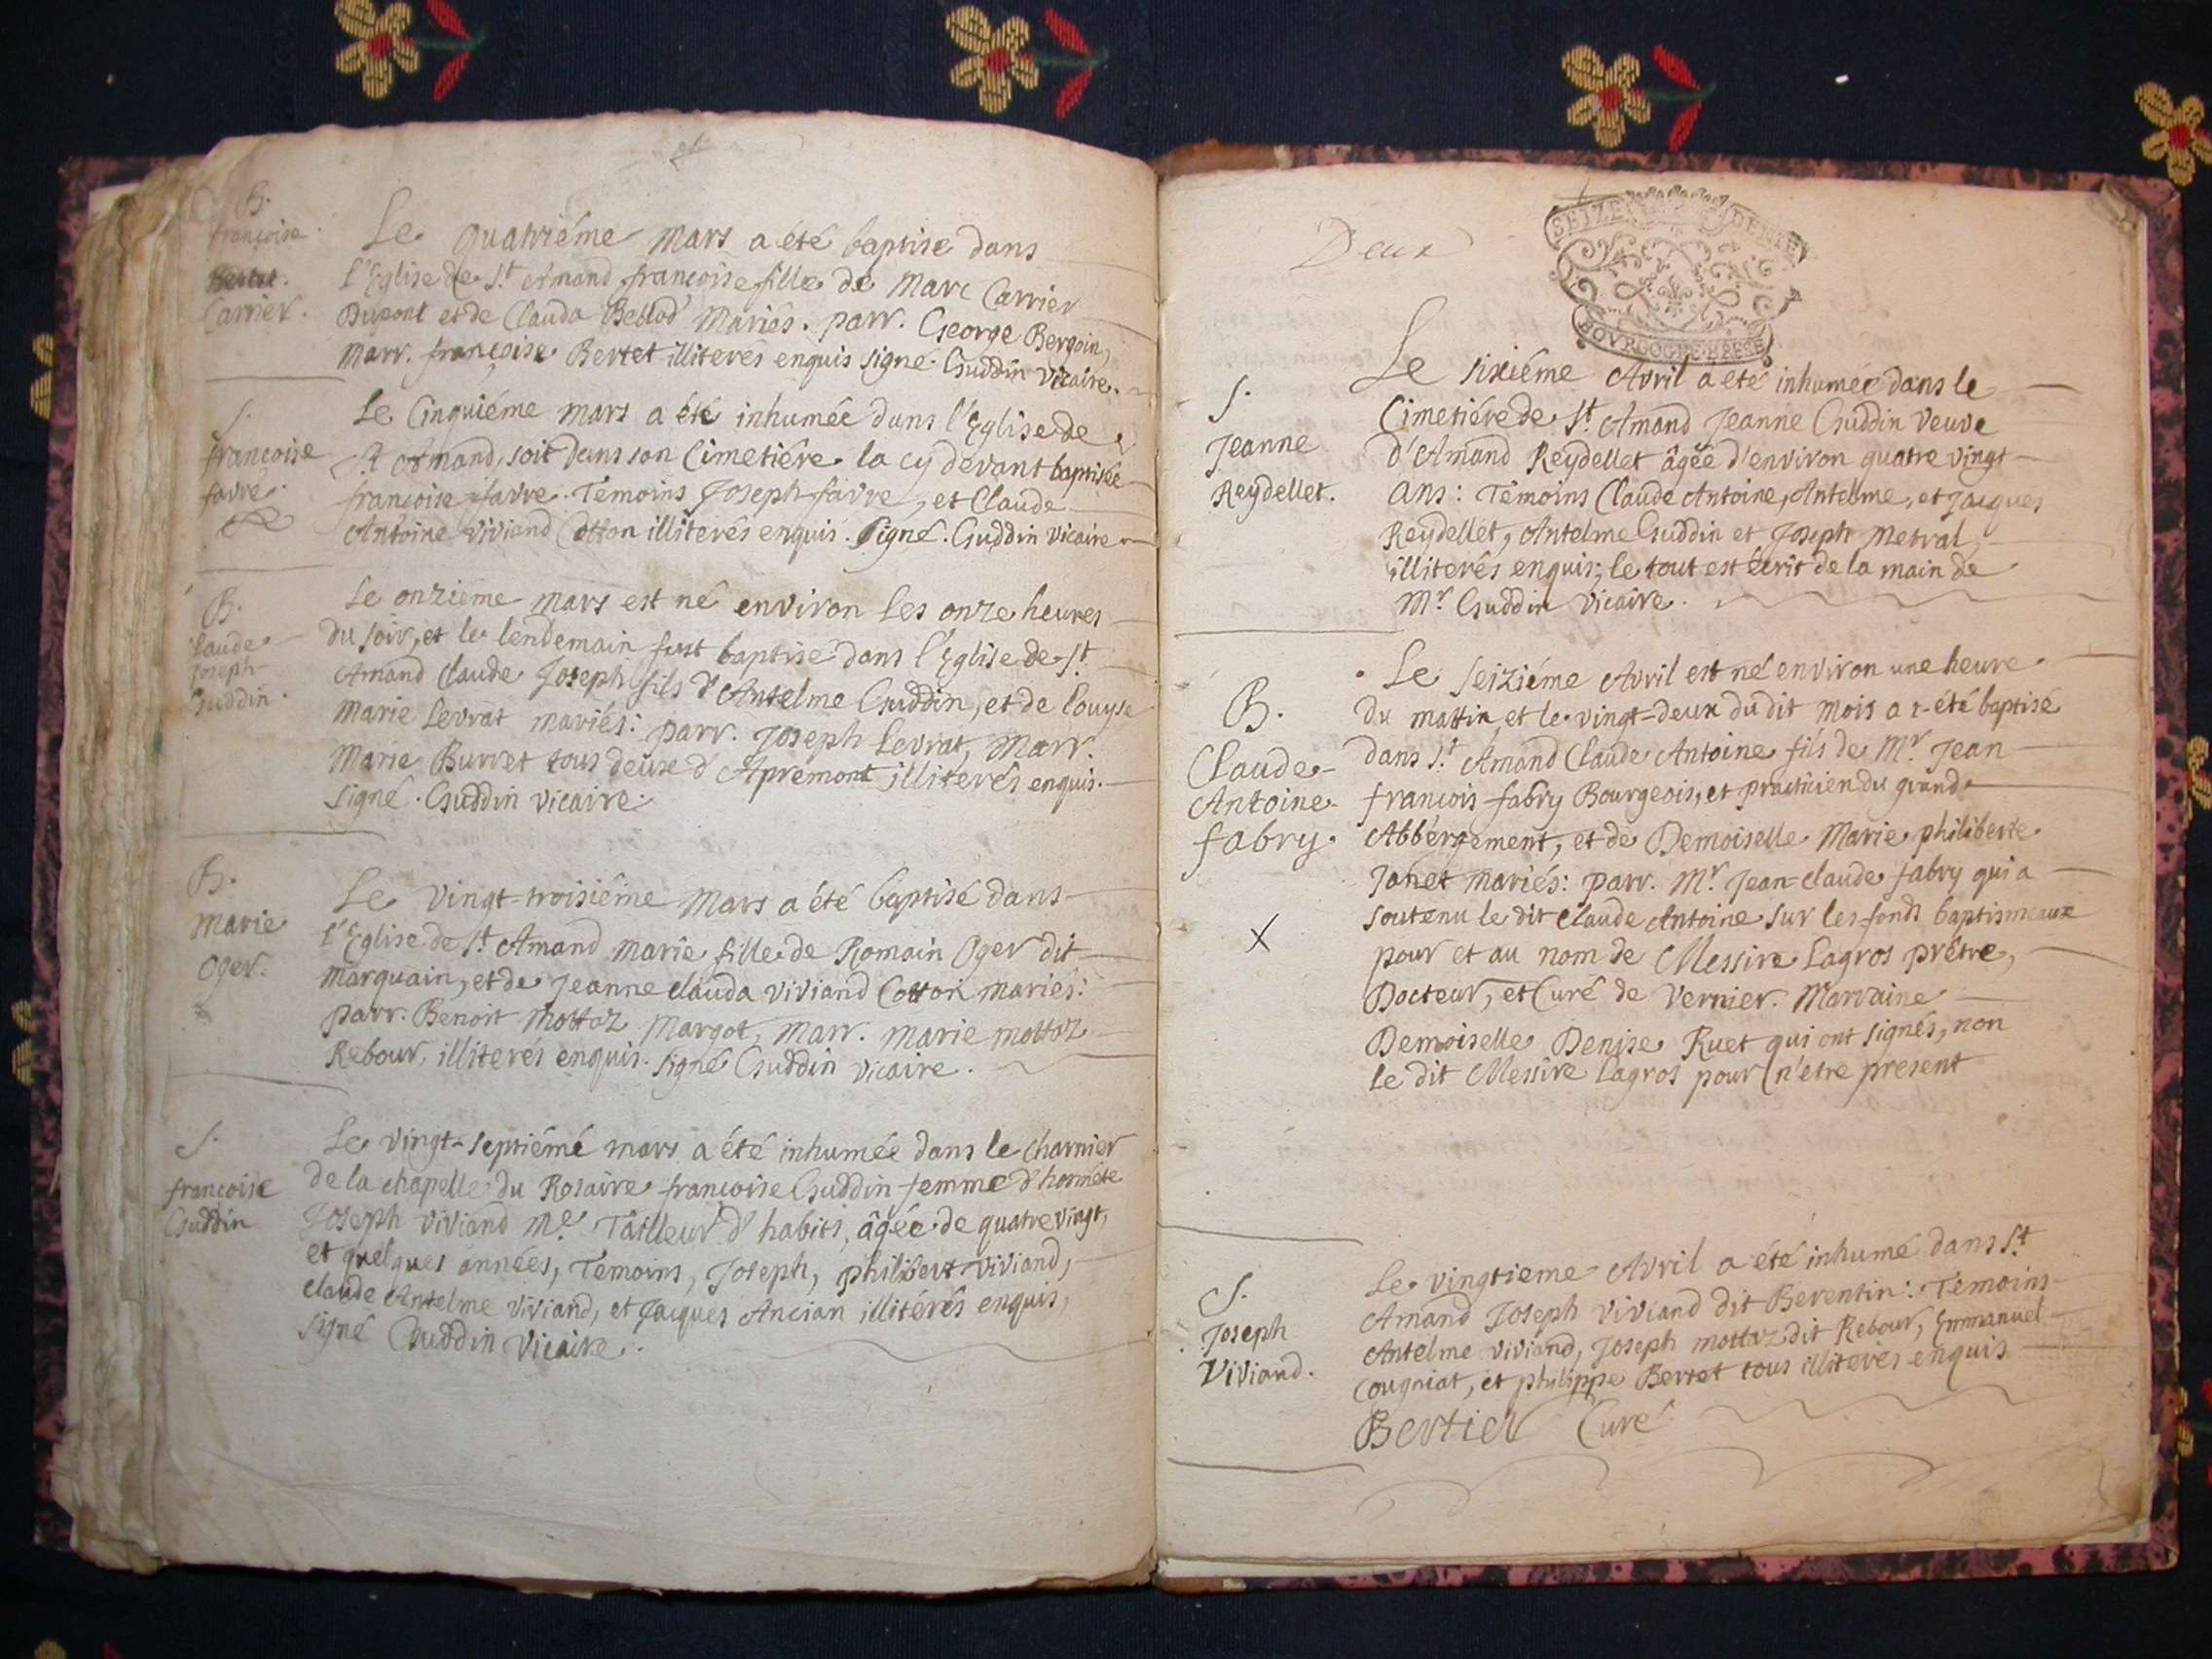 B.
françoise
Carrier.
Le quatriéme mars a été baptisé dans
l'Eglise de St Amand françoise fille de Marc Carrier
Dupont et de Clauda Beblod Mariés. parr. George Bergoin,
Marr. françoise Bertet illiterés enquis signé. Guddin vicaire.
S.
françoise
favre.
Le Cinquiéme mars a été inhumée dans l'Eglise de
St Amand, soit dans son Cimetiére la cy devant baptisée
françoise favre. Temoins Joseph favre, et Claude
Antoine Viviand Cotton illiterés enquis. Signé. Guddin vicaire
B.
Claude
Joseph
Guddin.
Le onziéme mars est né environ les onze heures
du soir, et le lendemain fust baptisé dans l'Eglise de St
Amand Claude Joseph fils d'Antelme Guddin, et de louyse
Marie Levrat mariés: parr. Joseph Levrat, Marr.
Marie Burret tous deüx d'Apremont illiterés enquis.
signé. Guddin vicaire.
B.
Marie
Oger.
Le vingt-troisiéme Mars a été baptisé dans
l'Eglise de St Amand Marie fille de Romain Oger dit
Marquain, et de Jeanne clauda Viviand Cotton mariés:
parr. Benoit Mottaz Margot, Marr. Marie mottaz
Rebour, illiterés enquis. signé Guddin vicaire.
S.
françoise
Guddin
Le vingt-septiémé mars a été inhumée dans le charnier
de la chapelle du Rosaire francoise Guddin femme d'honnéte
Joseph Viviand Me. Tailleur d'habits, âgée de quatre vingt,
et quelques années, Temoins, Joseph, philibert Viviand,
claude Antelme Viviand, et Jacques Ancian illitérés enquis,
signé Guddin Vicaire.
Deux
SEIZE DENIE
BOVRGOGNE BRESSE
S.
Jeanne
Reydellet.
Le sixiéme Avril a été inhumée dans le
Cimetiére de St Amand Jeanne Guddin Veuve
d'Amand Reydellet âgée d'environ quatre vingt
ans: Temoins Claude Antoine, Antelme, et Jacques
Reydellet, Antelme Guddin et Joseph Metral,
illiterés enquis; le tout est écrit de la main de
Mr Guddin Vicaire.
B.
Claude
Antoine
fabry.
X
Le seiziéme Avril est né environ une heure
du mattin, et le vingt-deux du dit mois a été baptisé
dans St Amand Claude Antoine fils de Mr Jean
francois fabry Bourgeois, et practicien du grand
Abbergement, et de Demoiselle Marie philiberte
Janet mariés: parr. Mr Jean-claude fabry qui a
soutenu le dit claude Antoine sur les fonds baptismeaux
pour et au nom de Messire Lagros prêtre,
Docteur, et Curé de Vernier. Marraine
Demoiselle Denise Ruet qui ont signés, non
le dit Messire Lagros pour n'etre present
S.
Joseph
Viviand.
Le vingtieme Avril a été inhumé dans St
Amand Joseph Viviand dit Berentin: Temoins
Antelme viviand, Joseph mottaz dit Rebour, Emmanuel
Cougniat, et philippe Bertet tous illiterés enquis
Bertier Curé